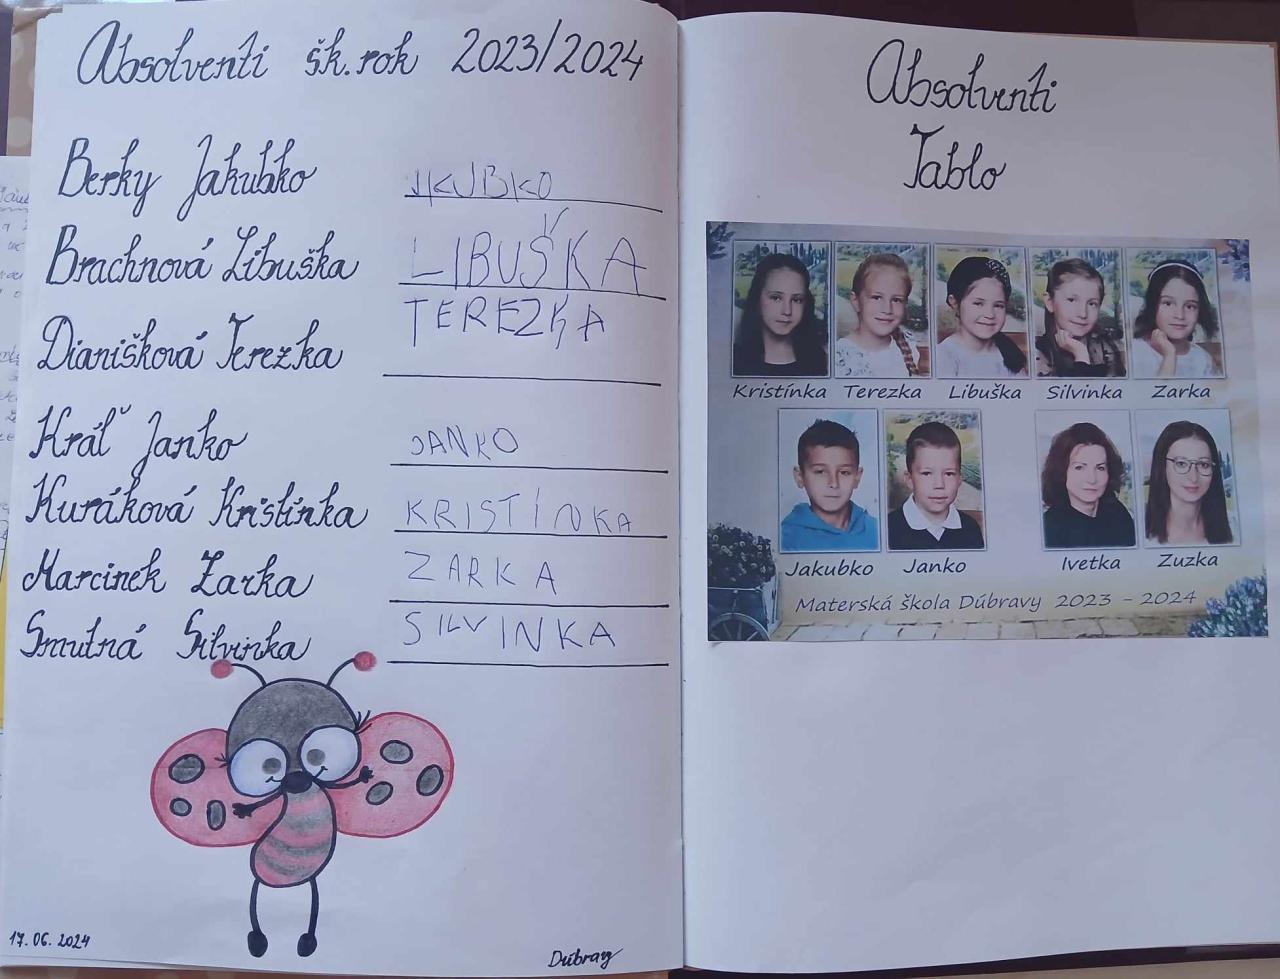 Absolventi šk. rok 2023/2024
Berky Jakubko JKUBKO
Brachnová Libuška LIBUŠKA
Dianišková Terezka TEREZKA
Kráľ Janko JANKO
Kuráková Kristínka KRISTÍNKA
Marcinek Zarka ZARKA
Smutná Silvinka SILVINKA
17.06.2024
Dúbravy
Absolventi
Tablo
Kristínka Terezka Libuška Silvinka Zarka
Jakubko Janko Ivetka Zuzka
Materská škola Dúbravy 2023 - 2024